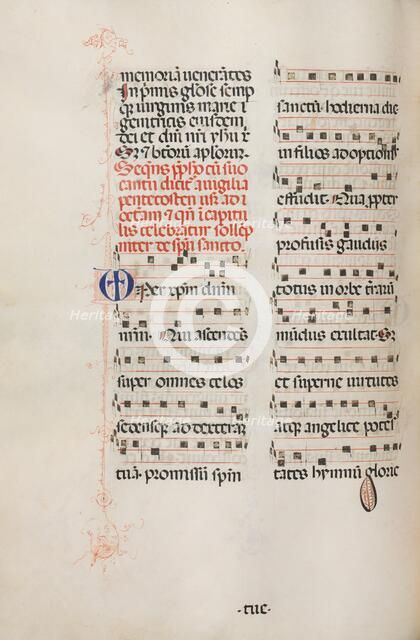 memoriā venerātes
In pmis gloſe semp
q͛ virginis marie i
genitricis eiusdem
dei et dn̄i nr̄i yhu x̄
Sꝫ ⁊ btōrum aploꝝ
Seqn̄s p̄fatio cū suo
cantu dicit̄ ī vigilia
pentecosten usq ad i
et qn̄ ī capitu
lis celebratur sollēp
niter de spū sancto.
Per xp̄m dnm
nr̄m. Qui ascendēs
super omnes celos
sedensqꝫ ad dexterā
tuā promissū spm
sanctū hodierna die
in filios adoptiōis
effudit. Qua ꝓpter
profusis gaudiis
totus in orbe terraꝝ
mūdus exultat. Sꝫ
et superne virtutes
atqꝫ angelice potes
tates hymnū glorie
·tue·